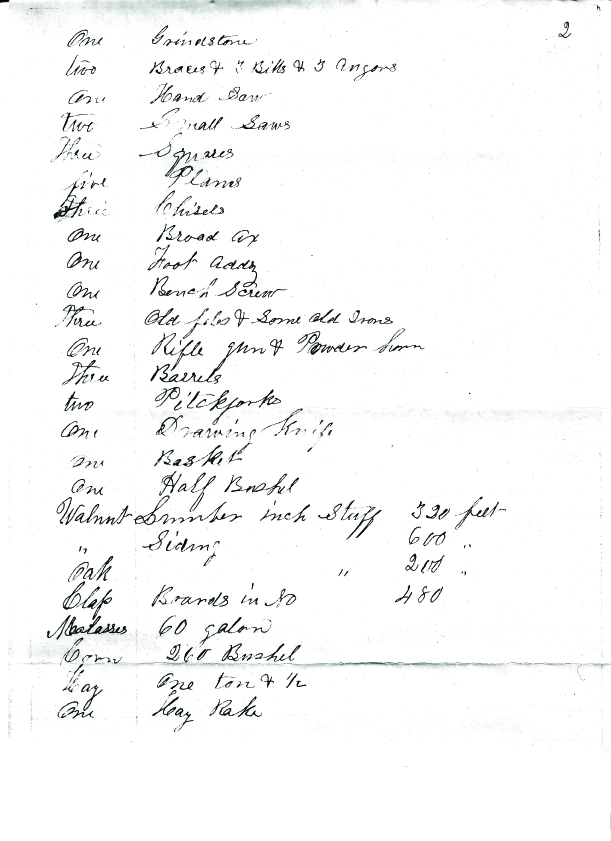 2
One Grindstone
two Braces & 3 Bitts & 3 Augors
One Hand Saw
two Small Saws
Three Squares
five Planes
Three Chisels
One Broad ax
One Foot Addz
One Bench Screw
three Old files & Some Old Irons
One Rifle gun & Powder horn
Three Barrels
two Pitckforks
One Drawing Knife
One Basket
One Half Bushel
Walnut Lumber inch Stuff 320 feet
„ Siding 600 „
Oak „ 200 „
Clap Boards in No 480
Molasses 60 galon
Corn 260 Bushel
Hay One ton & 1/2
One Hay Rake